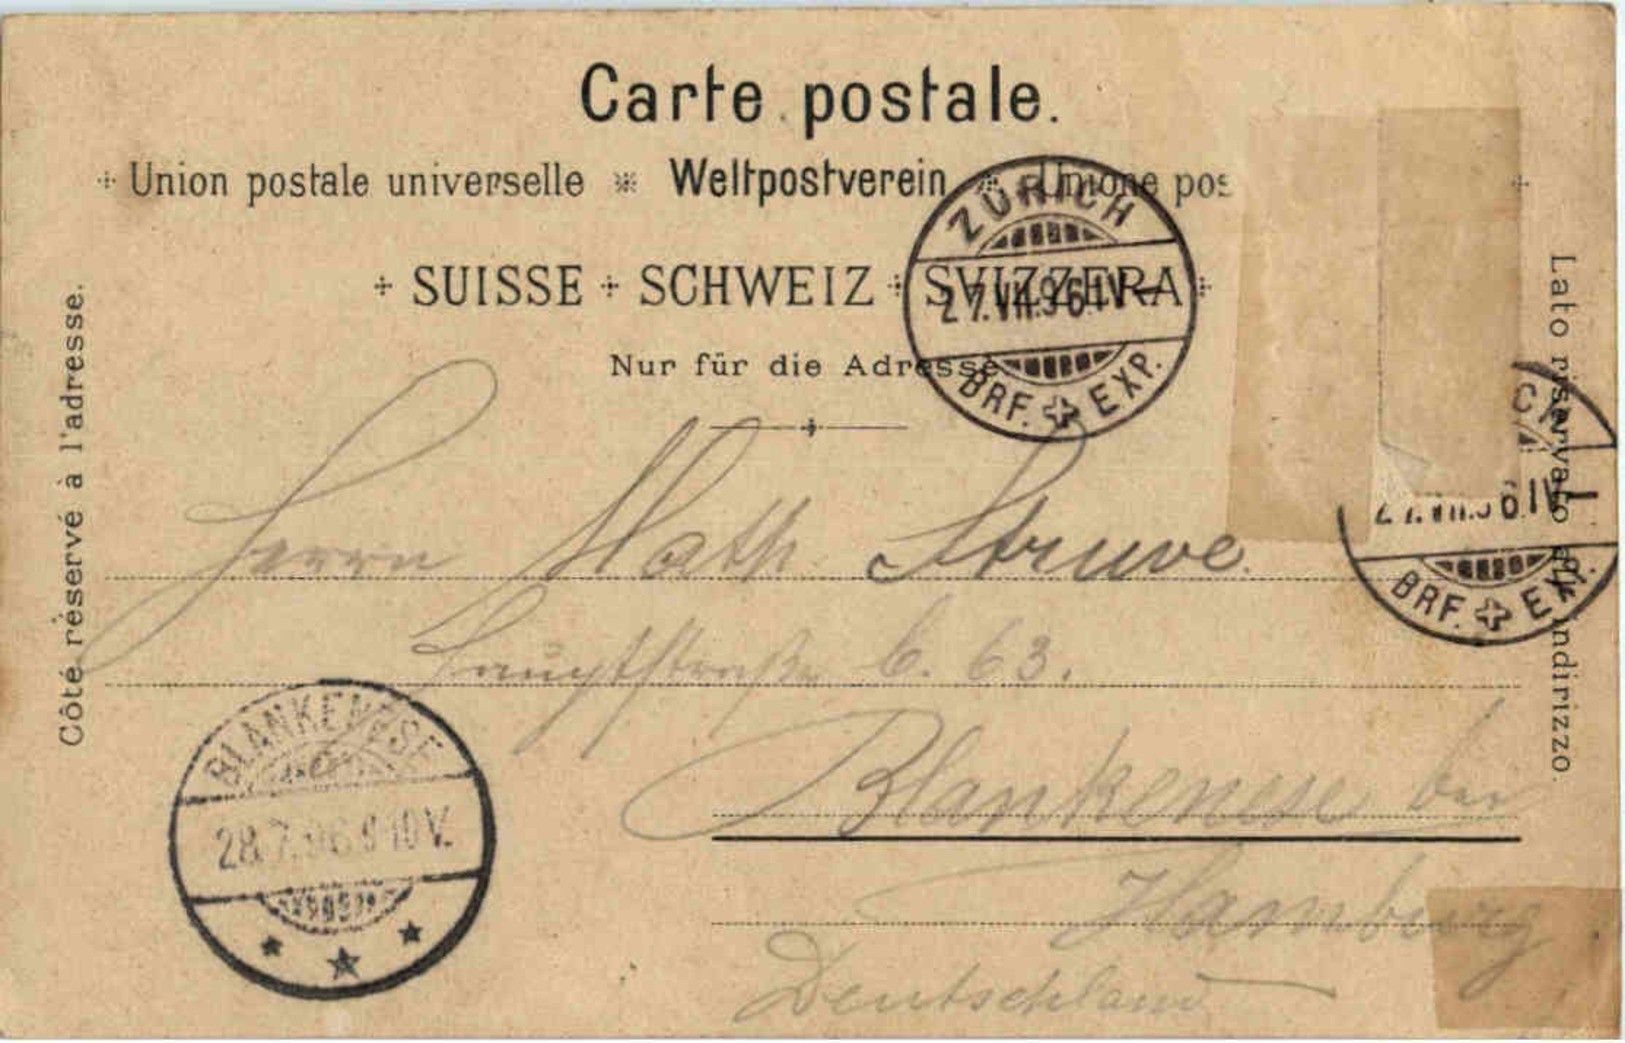 Carte postale.
+ Union postale universelle ※ Weltpostverein ※ Unione pos
+ SUISSE + SCHWEIZ + SVIZZERA +
Nur für die Adresse
ZÜRICH
27.VII.96.IV–
BRF. EXP.
Côté réservé à l'adresse.
Lato riservato all' indirizzo.
CH
27.VII.96.IV–
BRF. EXP.
Herrn Math. Struve.
Hauptstraße 63.
Blankenese bei
Hamburg
Deutschland
BLANKENESE
28.7.96.9-10V.